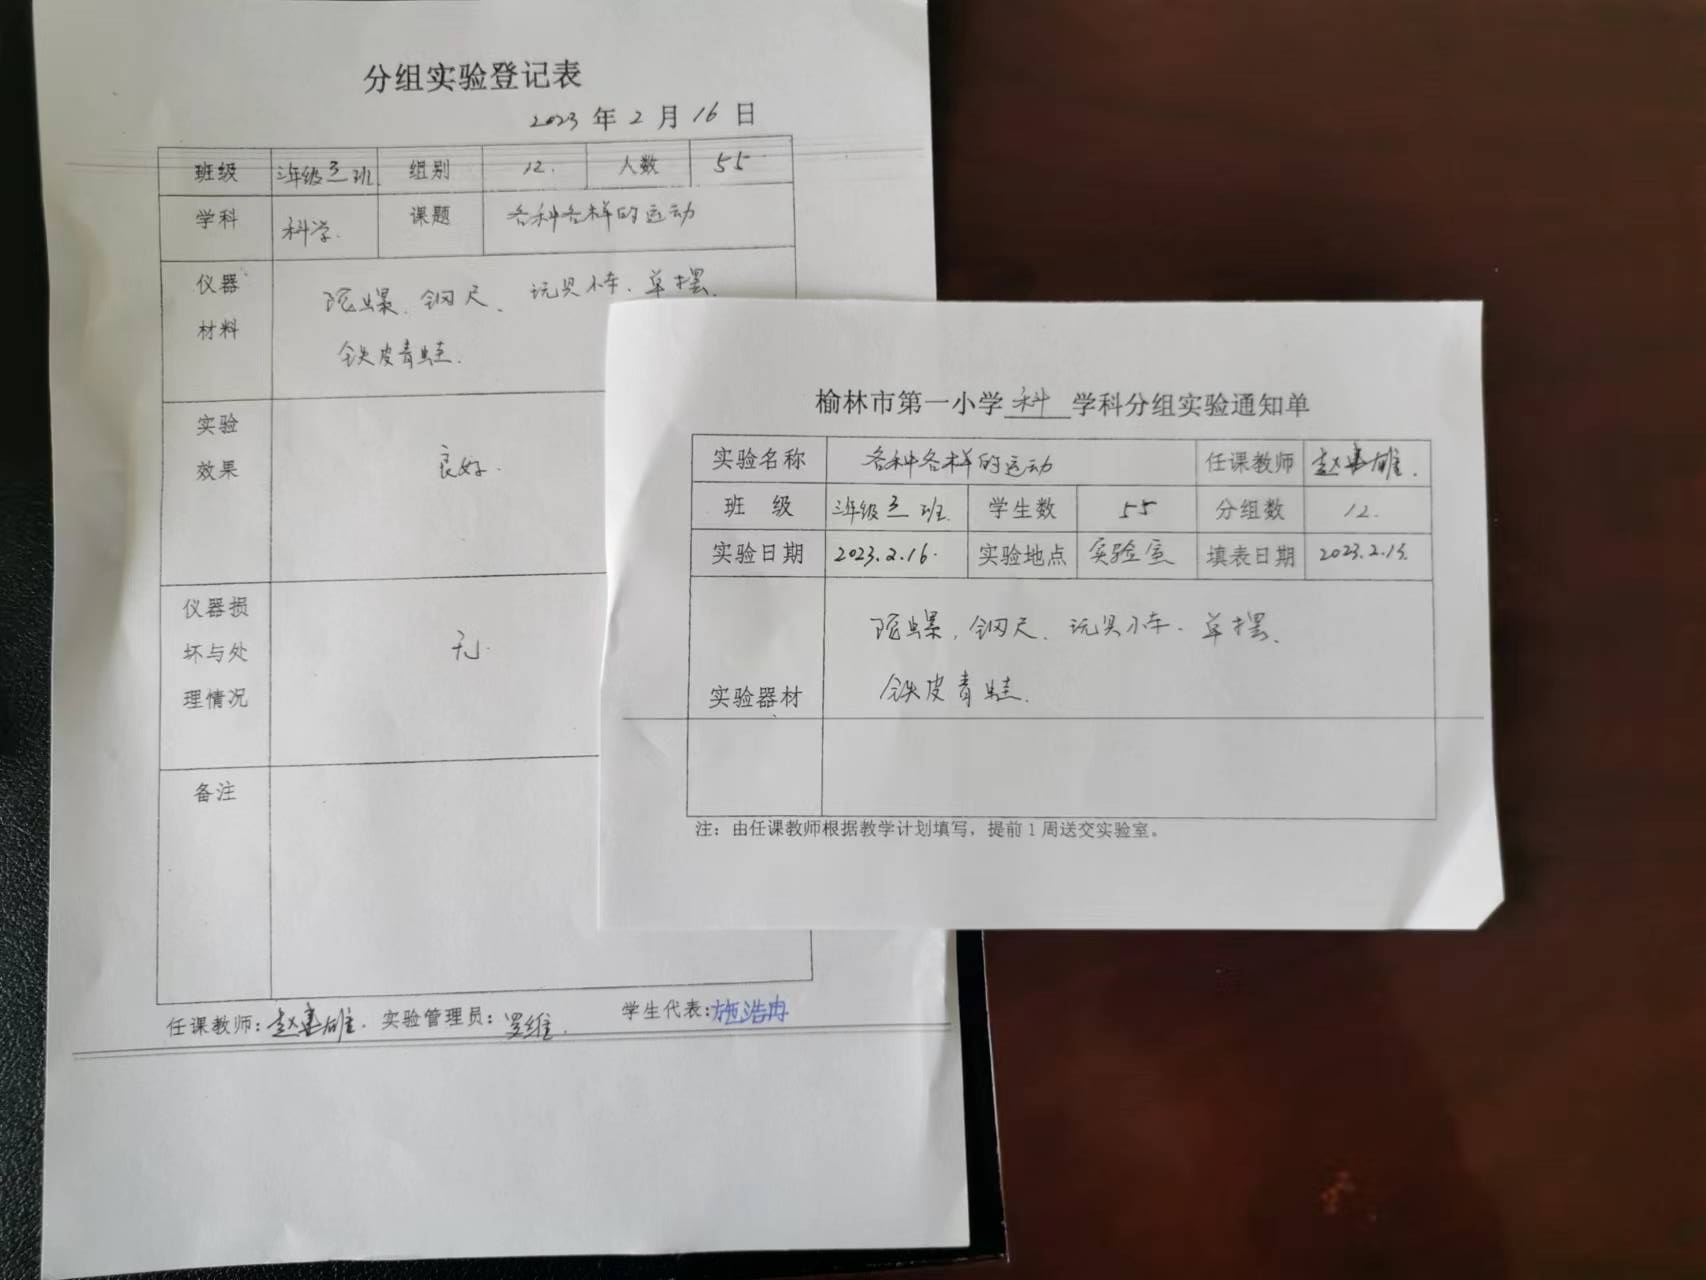 分组实验登记表
2023 年 2 月 16 日
班级 三年级三班 组别 12. 人数 55
学科 科学. 课题 各种各样的运动
仪器 陀螺、钢尺、玩具小车、单摆、
材料 铁皮青蛙.
实验
效果 良好.
仪器损
坏与处 无.
理情况
备注
任课教师: 实验管理员: 罗维. 学生代表:施浩冉
榆林市第一小学 科 学科分组实验通知单
实验名称 各种各样的运动 任课教师
班 级 三年级三班 学生数 55 分组数 12.
实验日期 2023.2.16. 实验地点 实验室 填表日期
陀螺、钢尺、玩具小车、单摆、
铁皮青蛙.
实验器材
注：由任课教师根据教学计划填写，提前 1 周送交实验室。